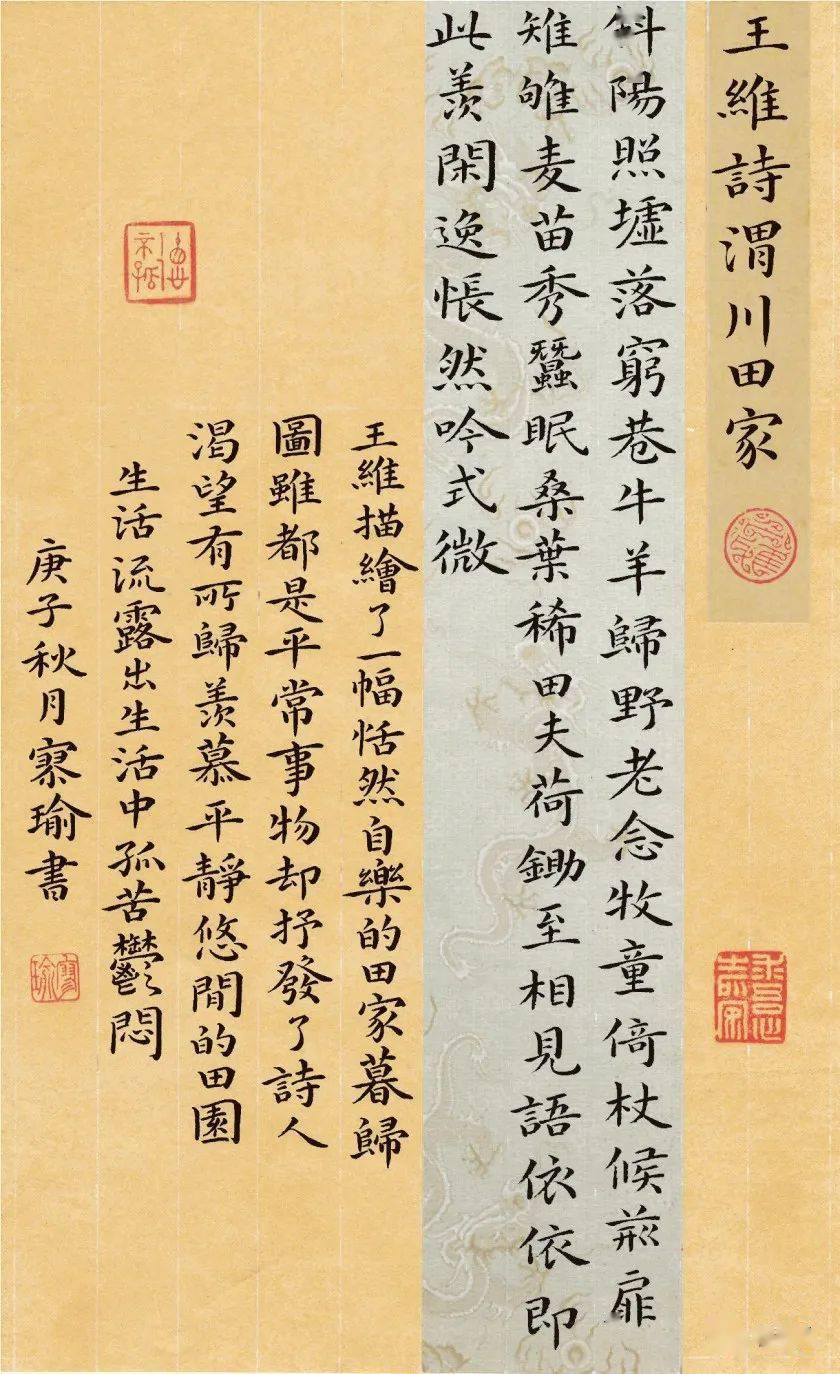 王維詩渭川田家
斜陽照墟落窮巷牛羊歸野老念牧童倚杖候荊扉
雉雊麦苗秀蠶眠桑葉稀田夫荷鋤至相見語依依即
此羨閑逸悵然吟式微
王維描繪了一幅恬然自樂的田家暮歸
圖雖都是平常事物却抒發了詩人
渴望有所歸羨慕平靜悠閒的田園
生活流露出生活中孤苦鬱悶
庚子秋月瑜書